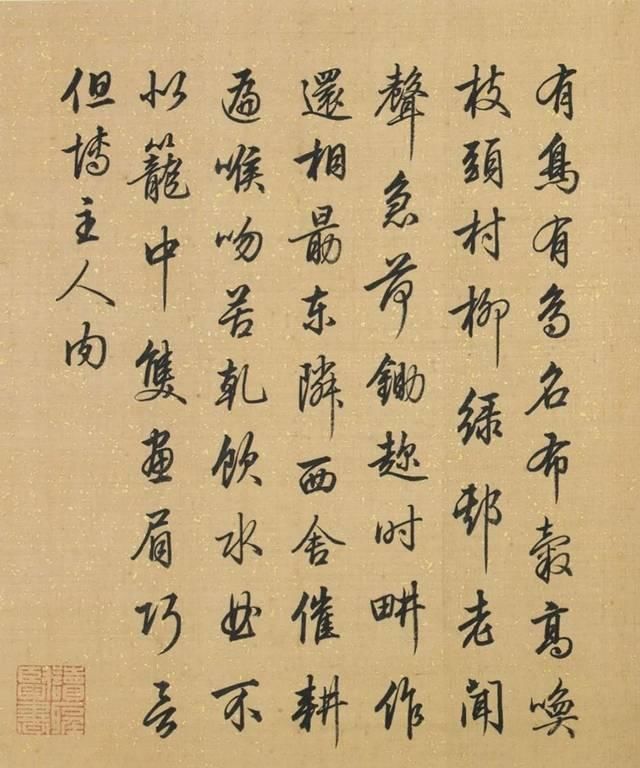 有鳥有鳥名布穀高喚
枝頭村柳綠邨老聞
聲急荷鋤趂时畊作
還相勗东隣西舍催耕
遍喉吻苦乾飲水曲不
似籠中隻畫眉巧言
但博主人肉